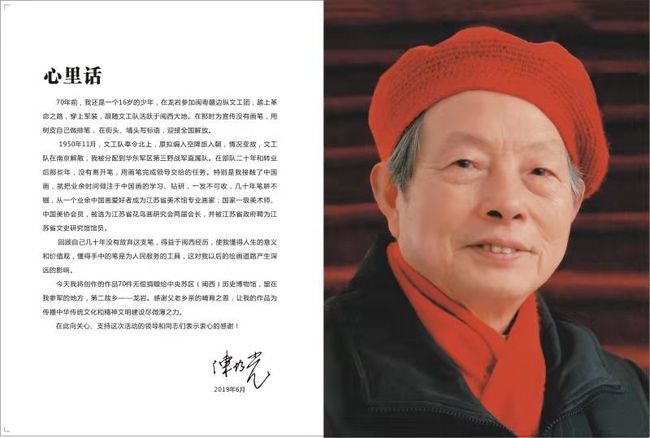 心里话
70年前，我还是一个16岁的少年，在龙岩参加闽粤赣边纵文工团，踏上革
命之路，穿上军装，跟随文工队活跃于闽西大地。在那时为宣传没有画笔，用
树皮自己做排笔，在街头、墙头写标语，迎接全国解放。
1950年11月，文工队奉令北上，原拟编入空降旅入朝，情况变故，文工
队在南京解散，我被分配到华东军区第三野战军直属队。在部队二十年和转业
后那些年，没有离开笔，用画笔完成领导交给的任务。特别是我接触了中国
画，就把业余时间倾注于中国画的学习、钻研，一发不可收，几十年笔耕不
辍，从一个业余中国画爱好者成为江苏省美术馆专业画家；国家一级美术师，
中国美协会员，被选为江苏省花鸟画研究会两届会长，并被江苏省政府聘为江
苏省文史研究馆馆员。
回顾自己几十年没有放弃这支笔，得益于闽西经历，使我懂得人生的意义
和价值观，懂得手中的笔是为人民服务的工具，这对我以后的绘画道路产生深
远的影响。
今天我将创作的作品70件无偿捐赠给中央苏区（闽西）历史博物馆，留在
我参军的地方，第二故乡——龙岩。感谢父老乡亲的哺育之恩，让我的作品为
传播中华传统文化和精神文明建设尽微薄之力。
在此向关心、支持这次活动的领导和同志们表示衷心的感谢！
2019年6月